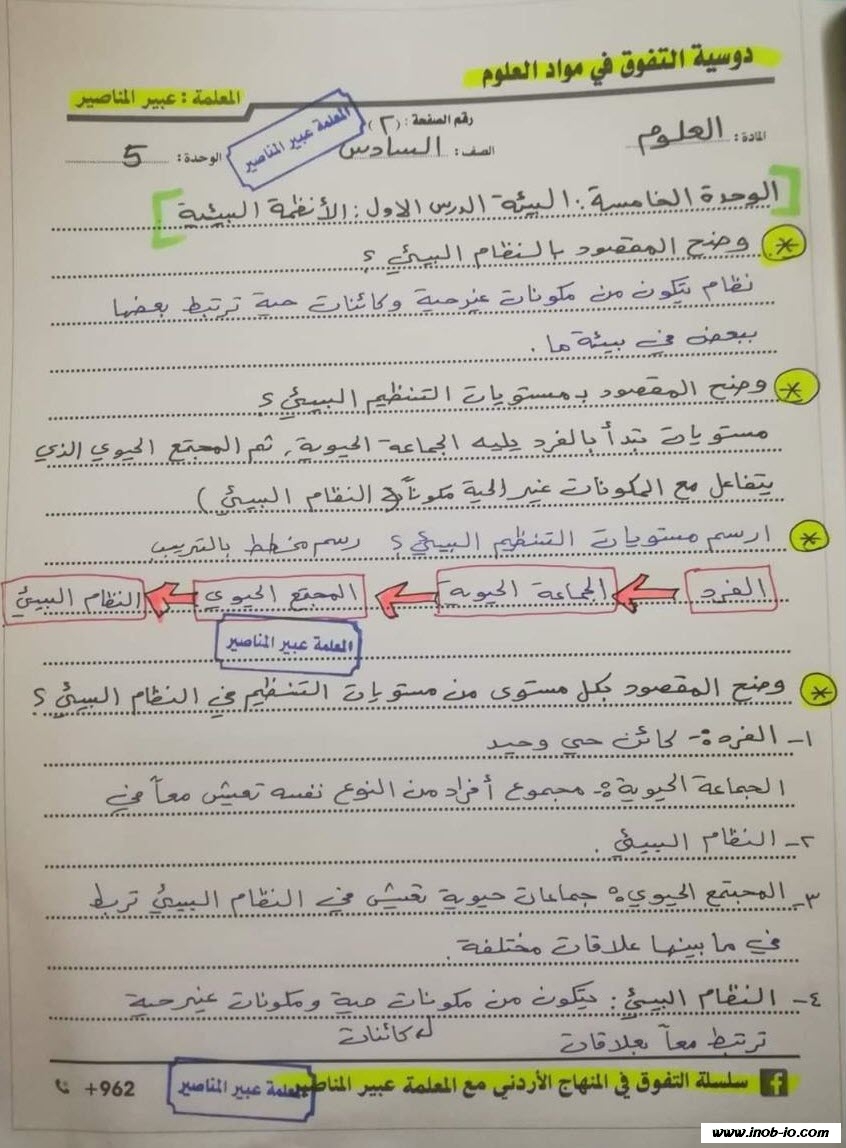 دوسية التفوق في مواد العلوم
المعلمة : عبير المناصير
المادة: العلوم
رقم الصفحة : (٢)
الصف: السادس
الوحدة: 5
المعلمة عبير المناصير
[الوحدة الخامسة : البيئة الدرس الاول : الأنظمة البيئية]
* وضح المقصود بالنظام البيئي ؟
نظام يتكون من مكونات غير حية وكائنات حية ترتبط بعضها
ببعض في بيئة ما .
* وضح المقصود بـ مستويات التنظيم البيئي ؟
مستويات تبدأ بالفرد يليه الجماعة الحيوية , ثم المجتمع الحيوي الذي
يتفاعل مع المكونات غير الحية مكوناً ( النظام البيئي )
* ارسم مستويات التنظيم البيئي ؟ رسم مخطط بالترتيب
الفرد ← الجماعة الحيوية ← المجتمع الحيوي ← النظام البيئي
المعلمة عبير المناصير
* وضح المقصود بكل مستوى من مستويات التنظيم في النظام البيئي ؟
١- الفرد :- كائن حي وحيد
الجماعة الحيوية :- مجموع أفراد من النوع نفسه تعيش معاً في
٢- النظام البيئي .
٣- المجتمع الحيوي : جماعات حيوية تعيش في النظام البيئي تربط
في ما بينها علاقات مختلفة .
٤- النظام البيئي : يتكون من مكونات حية ومكونات غير حية
كائنات
ترتبط معاً بعلاقات
سلسلة التفوق في المنهاج الأردني مع المعلمة عبير المناصير
المعلمة عبير المناصير
+962
www.inob-io.com